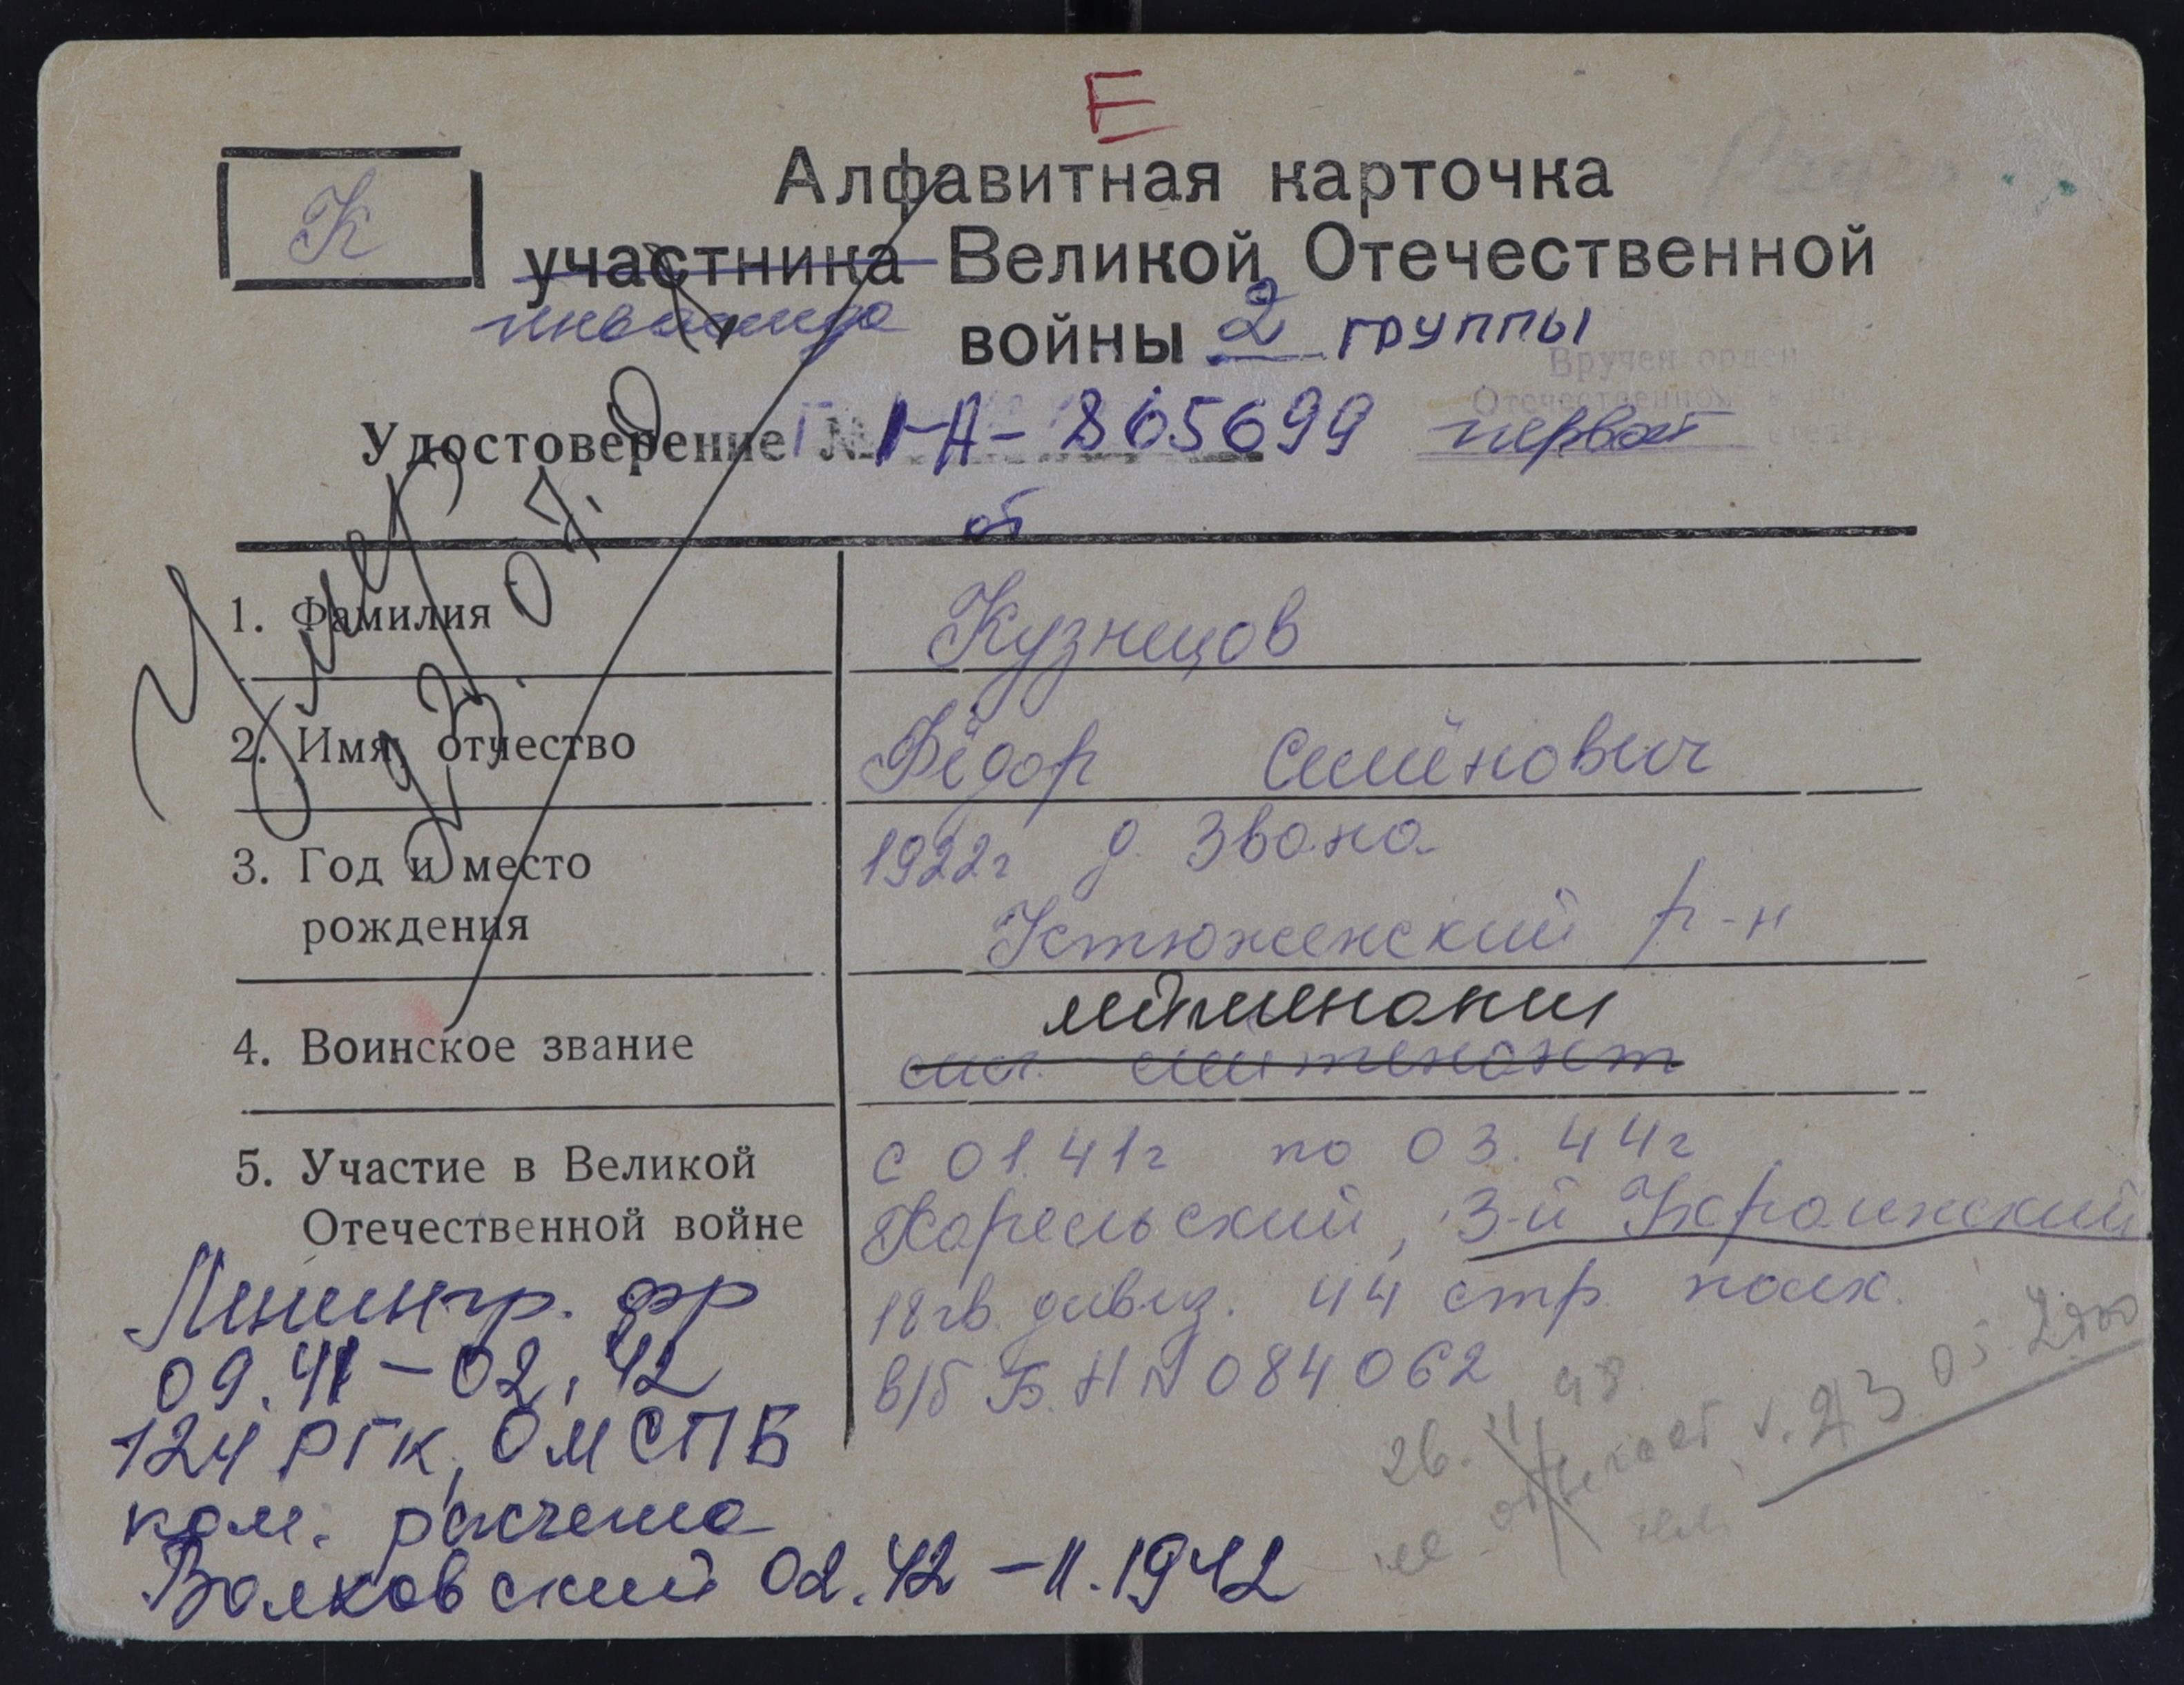 Е
К
Алфавитная карточка
участника Великой Отечественной
инвалида войны 2 группы
Вручен орден
Отечественной
Удостоверение № I-А-865699 первой
от
Умер
1. Фамилия Кузнецов
2. Имя, отчество Фёдор Семёнович
3. Год и место 1922г д. Звана
рождения Устюженский р-н
лейтенант
4. Воинское звание лейтенант
5. Участие в Великой с 01.41г по 03.44г
Отечественной войне Карельский, 3-й Украинский
18 гв. дивиз. 44 стр. полк.
в/б Б.Н № 084062
Ленингр. фр
09.41-02.42
124 РГК, ОМСПБ
ком. расчета
Волховский 02.42-11.1942
26. 11 98.
не